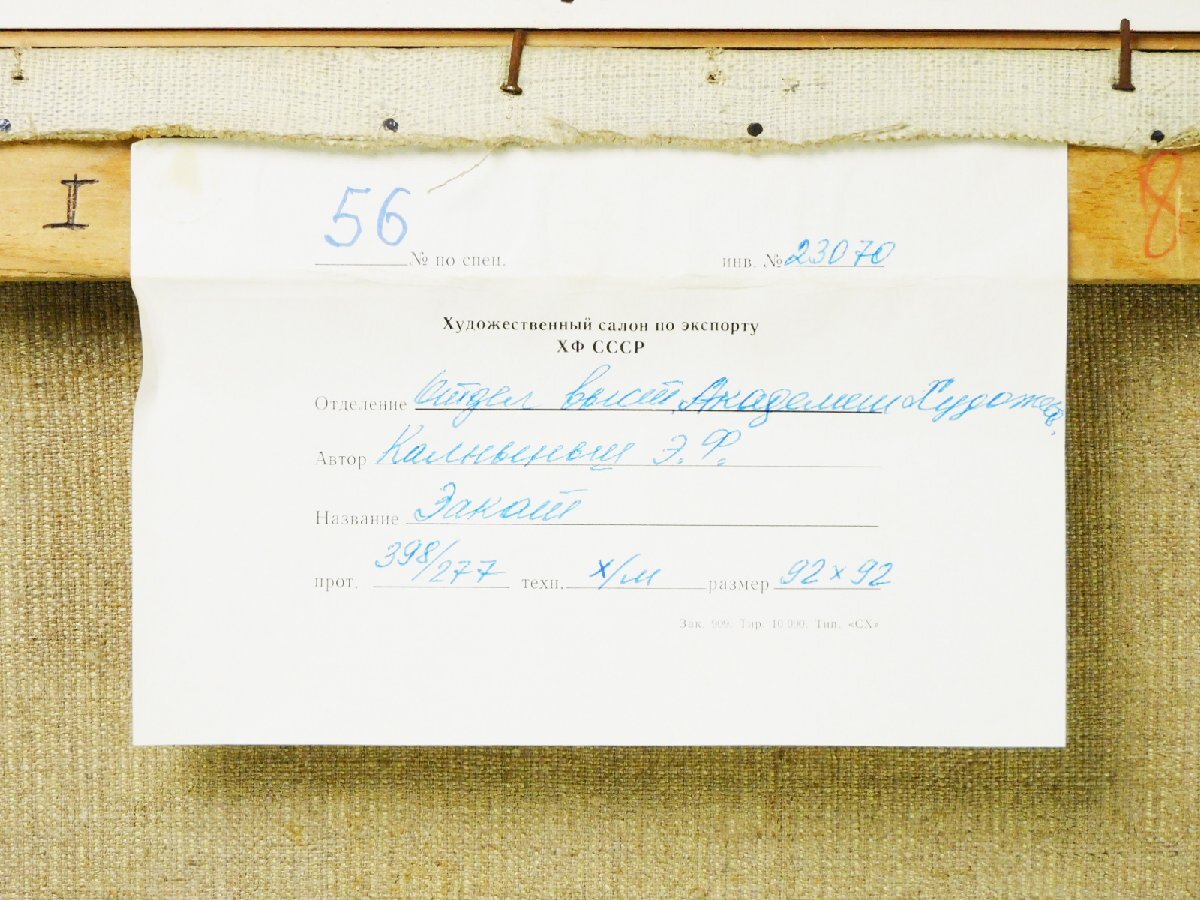 I
8
56
№ по спец. инв. № 23070
Художественный салон по экспорту
ХФ СССР
Отделение Отдел выст. Академии Художеств.
Автор Калныньш Э. Ф.
Название Закат
прот. 398/277 техн. х/м размер 92×92
Зак. 909. Тир. 10 000. Тип. «СХ»